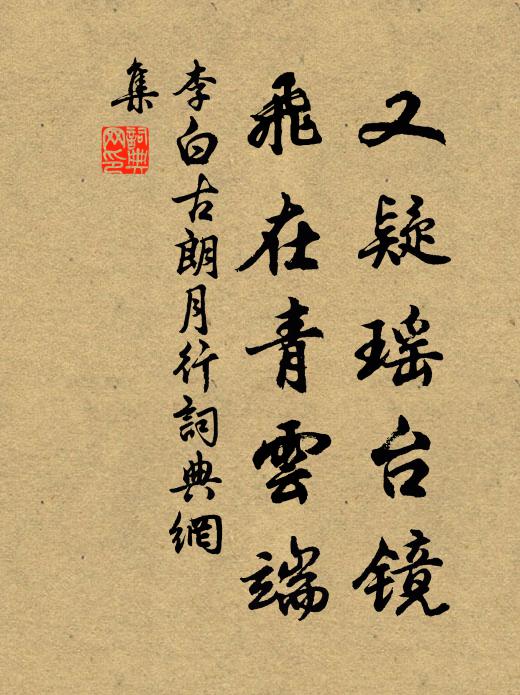 又疑瑶台镜
飛在青雲端
李白古朗月行詞典網
集
詞典
网印